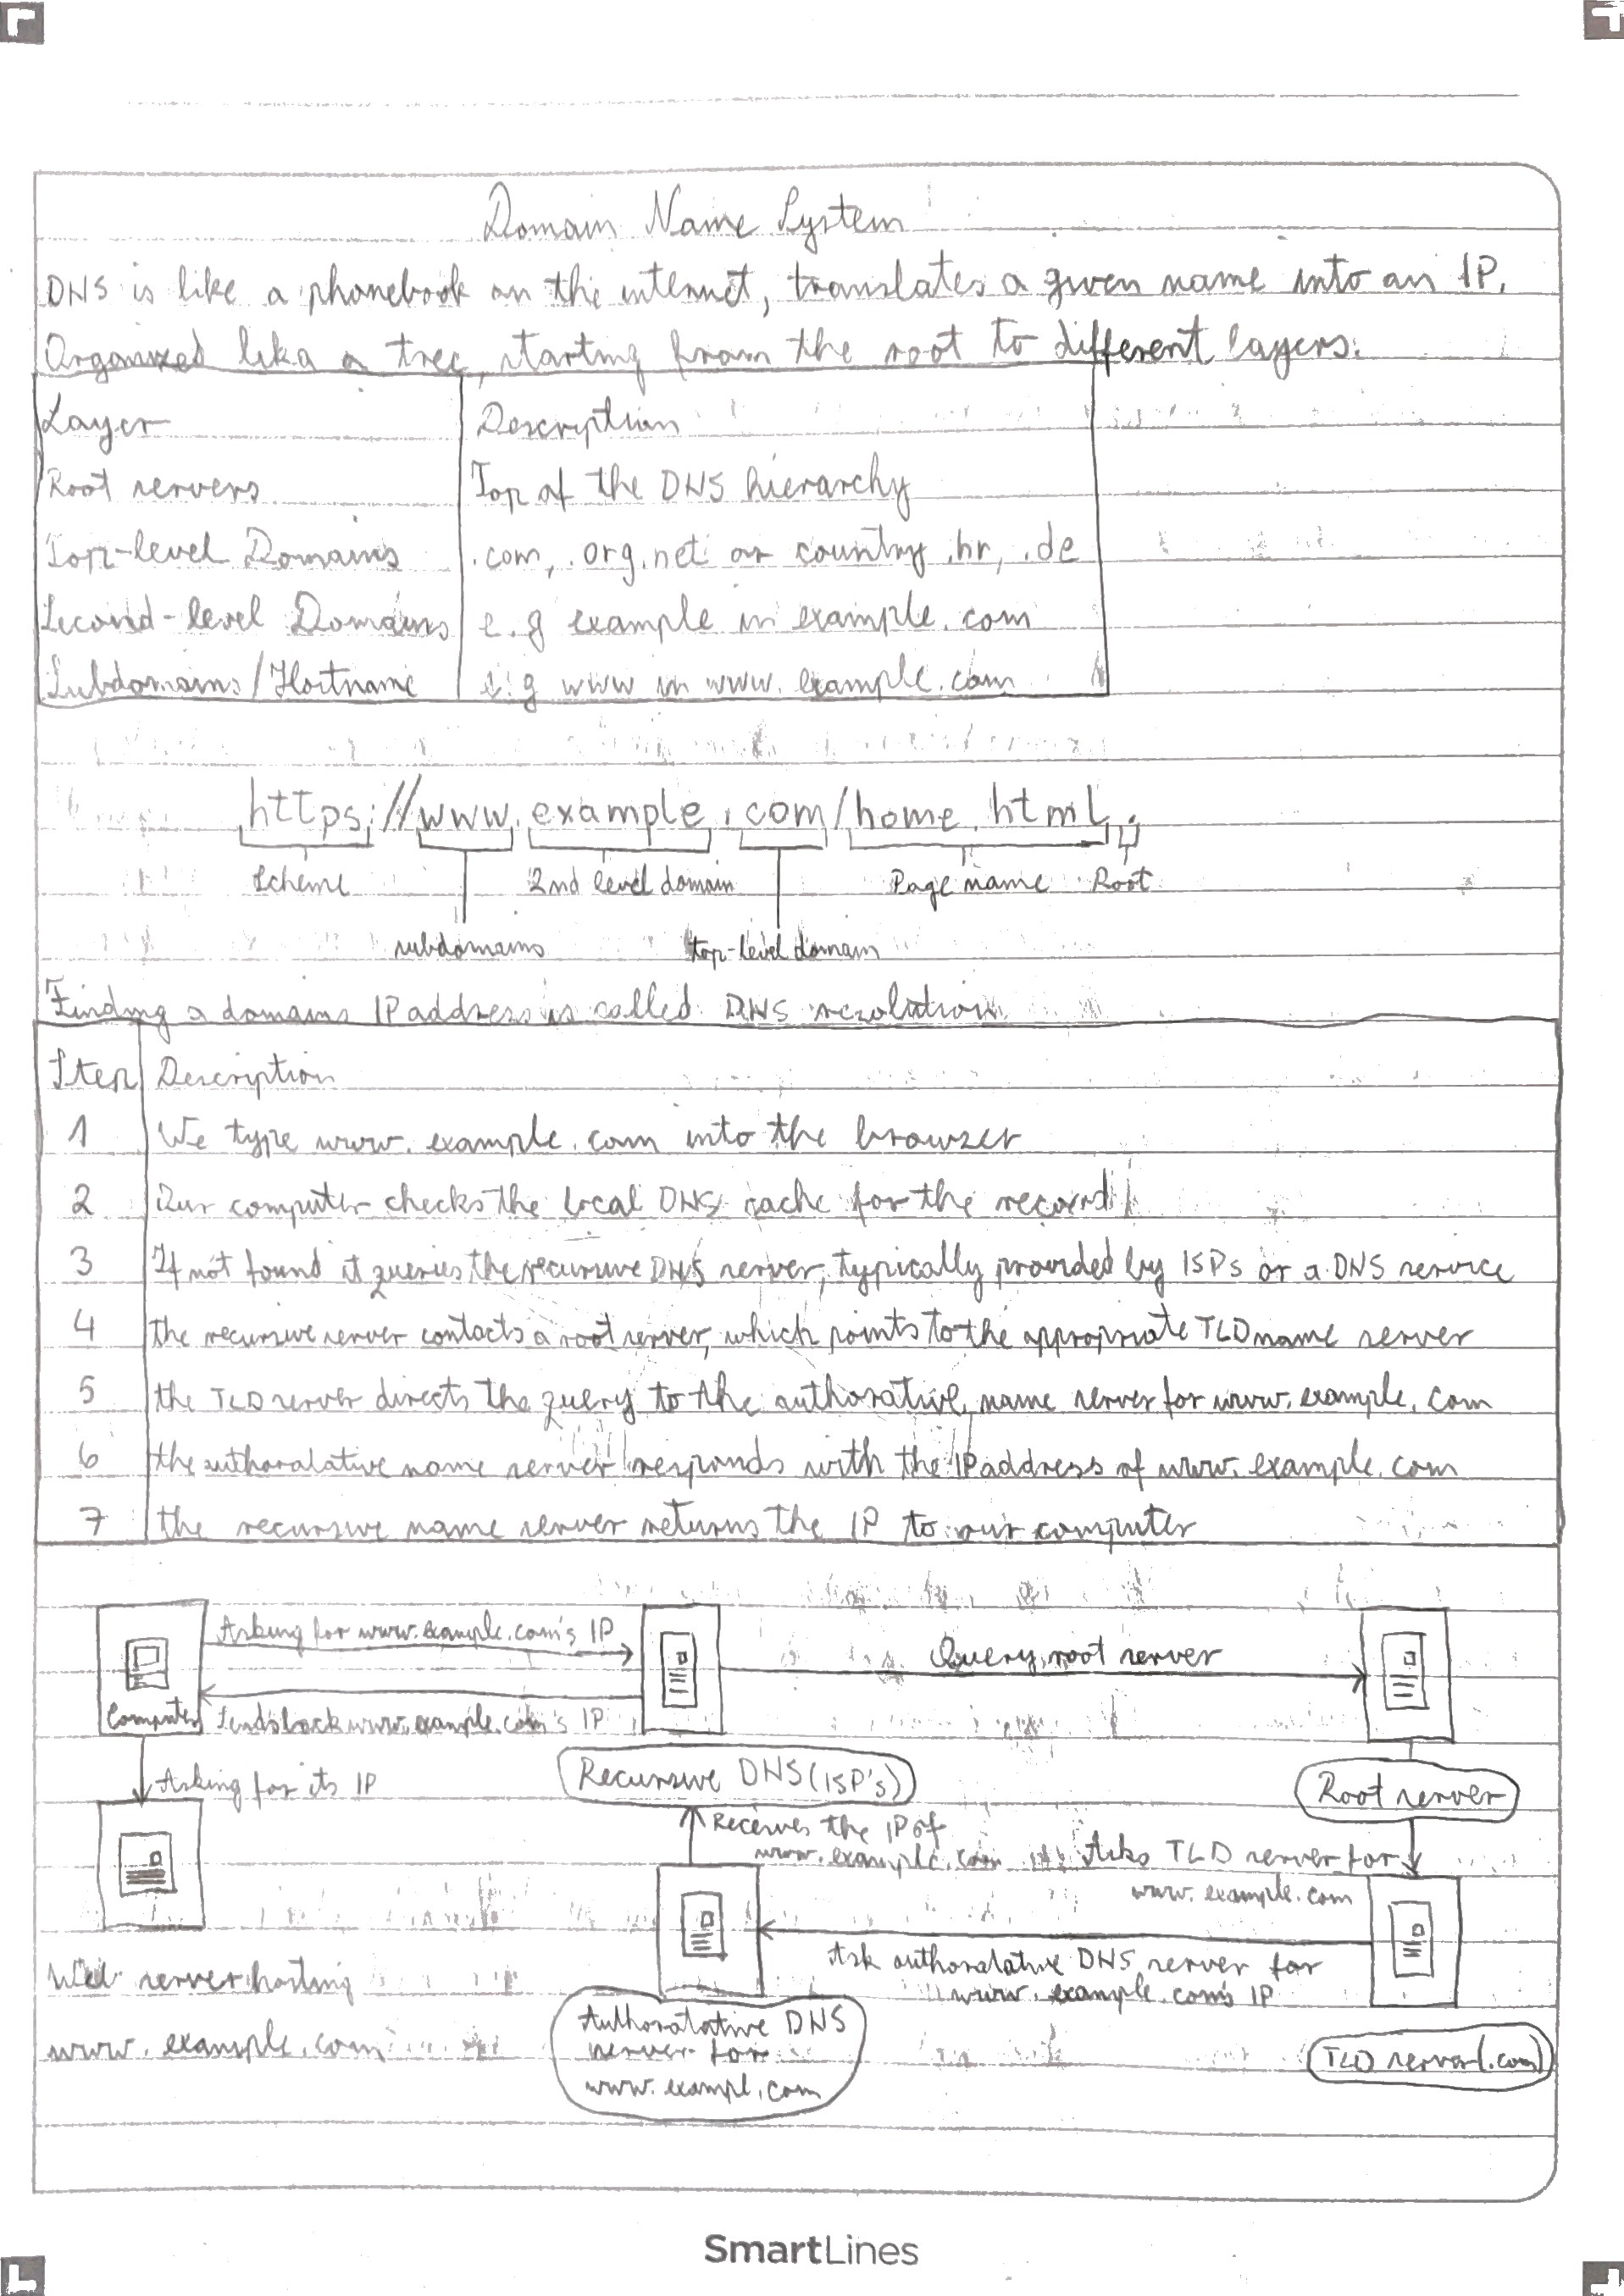 Domain Name System
DNS is like a phonebook on the internet, translates a given name into an IP.
Organized like a tree, starting from the root to different layers.
Layer Description
Root servers Top of the DNS hierarchy
Top-level Domains .com, .org, .net or country .hr, .de
Second-level Domains e.g example in example.com
Subdomains/Hostname e.g www in www.example.com
https://www.example.com/home.html.
Scheme 2nd level domain Page name Root
subdomains top-level domain
Finding a domains IP address is called DNS resolution
Step Description
1 We type www.example.com into the browser
2 Our computer checks the local DNS cache for the record
3 If not found it queries the recursive DNS server, typically provided by ISPs or a DNS service
4 the recursive server contacts a root server, which points to the appropriate TLD name server
5 the TLD server directs the query to the authorative name server for www.example.com
6 the authoralative name server responds with the IP address of www.example.com
7 the recursive name server returns the IP to our computer
Asking for www.example.com's IP
Query root server
Computer Sends back www.example.com's IP
Asking for its IP
Recursive DNS (ISP's)
Root server
Receives the IP of
www.example.com
Asks TLD server for
www.example.com
Ask authoralative DNS server for
www.example.com's IP
Web server hosting
www.example.com
Authoralative DNS
server for
www.exampl.com
TLD server (.com)
SmartLines